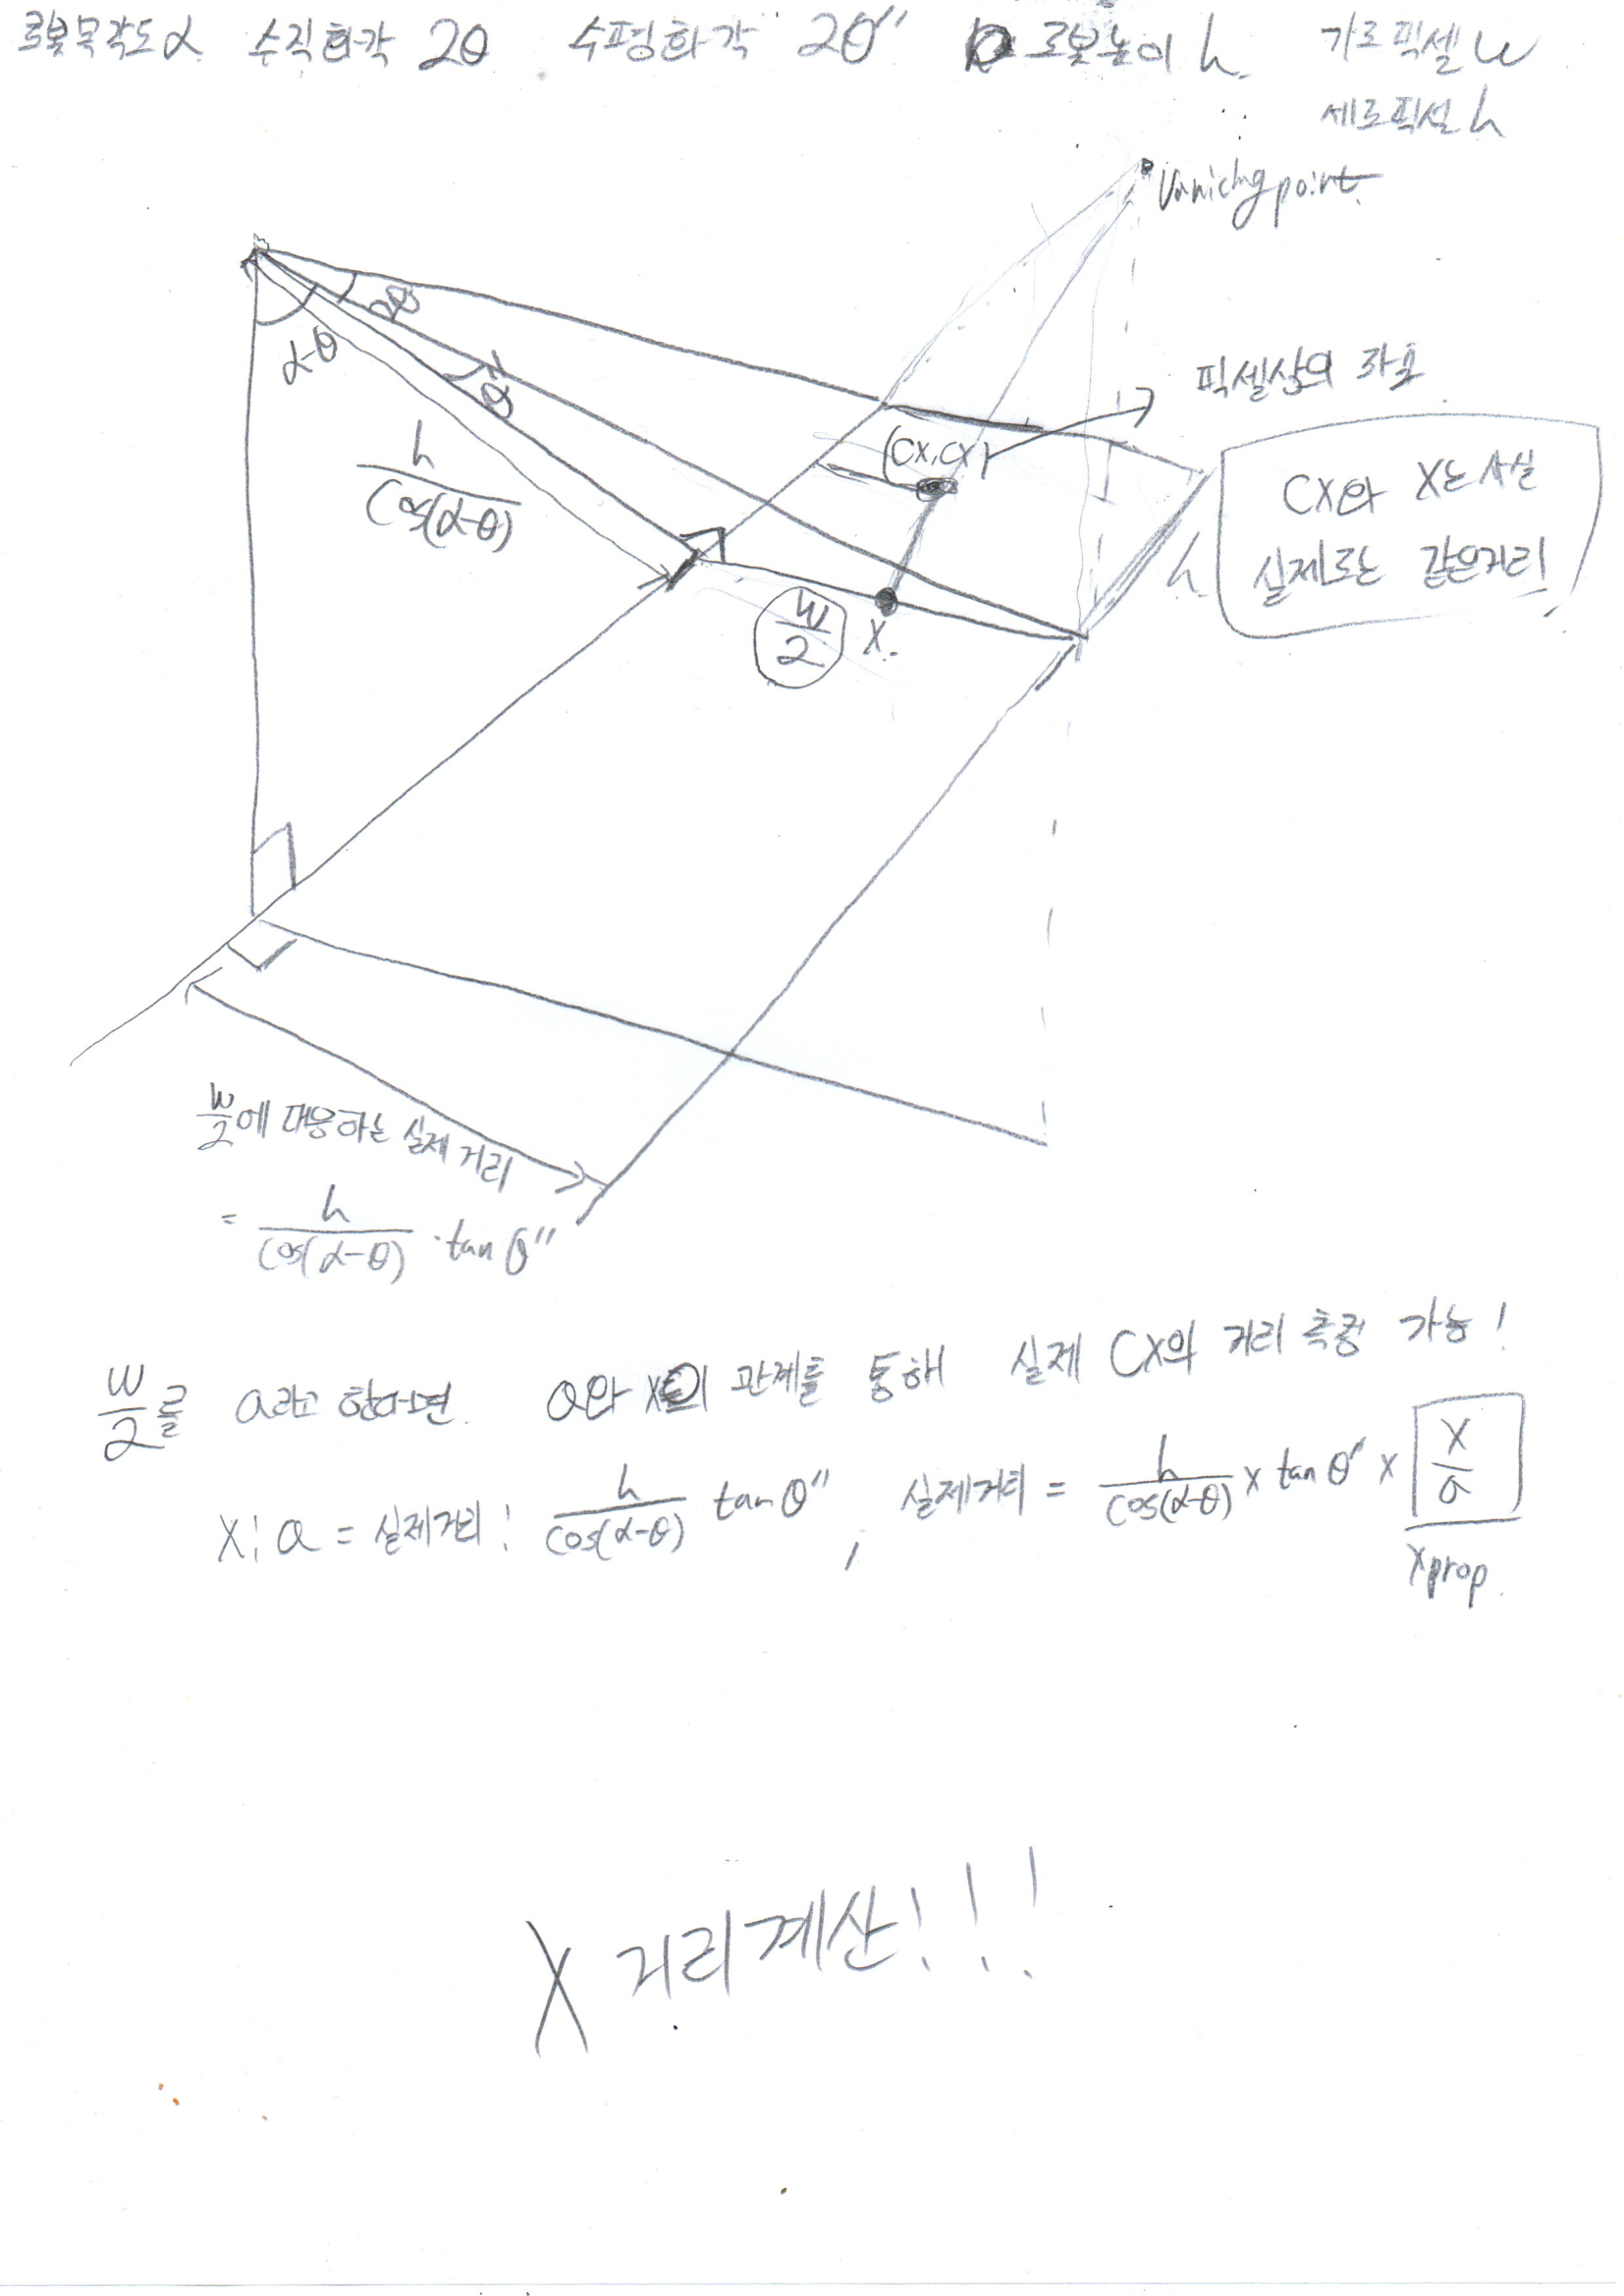 로봇목각도 α 수직화각 2θ 수평화각 2θ'' 로봇높이 h 가로픽셀 w
세로픽셀 h
Vanishing point
2θ
α-θ
θ''
h/cos(α-θ)
픽셀상의 좌표
(cx, cx)
CX와 X는 사실
실제로는 같은거리
h
w/2
X
w/2에 대응하는 실제 거리
= h/cos(α-θ) · tan θ''
w/2를 a라고 한다면 a와 x의 관계를 통해 실제 CX의 거리 측정 가능!
X : a = 실제거리 : h/cos(α-θ) tan θ'', 실제거리 = h/cos(α-θ) × tan θ'' × x/a
xprop.
X 거리계산!!!